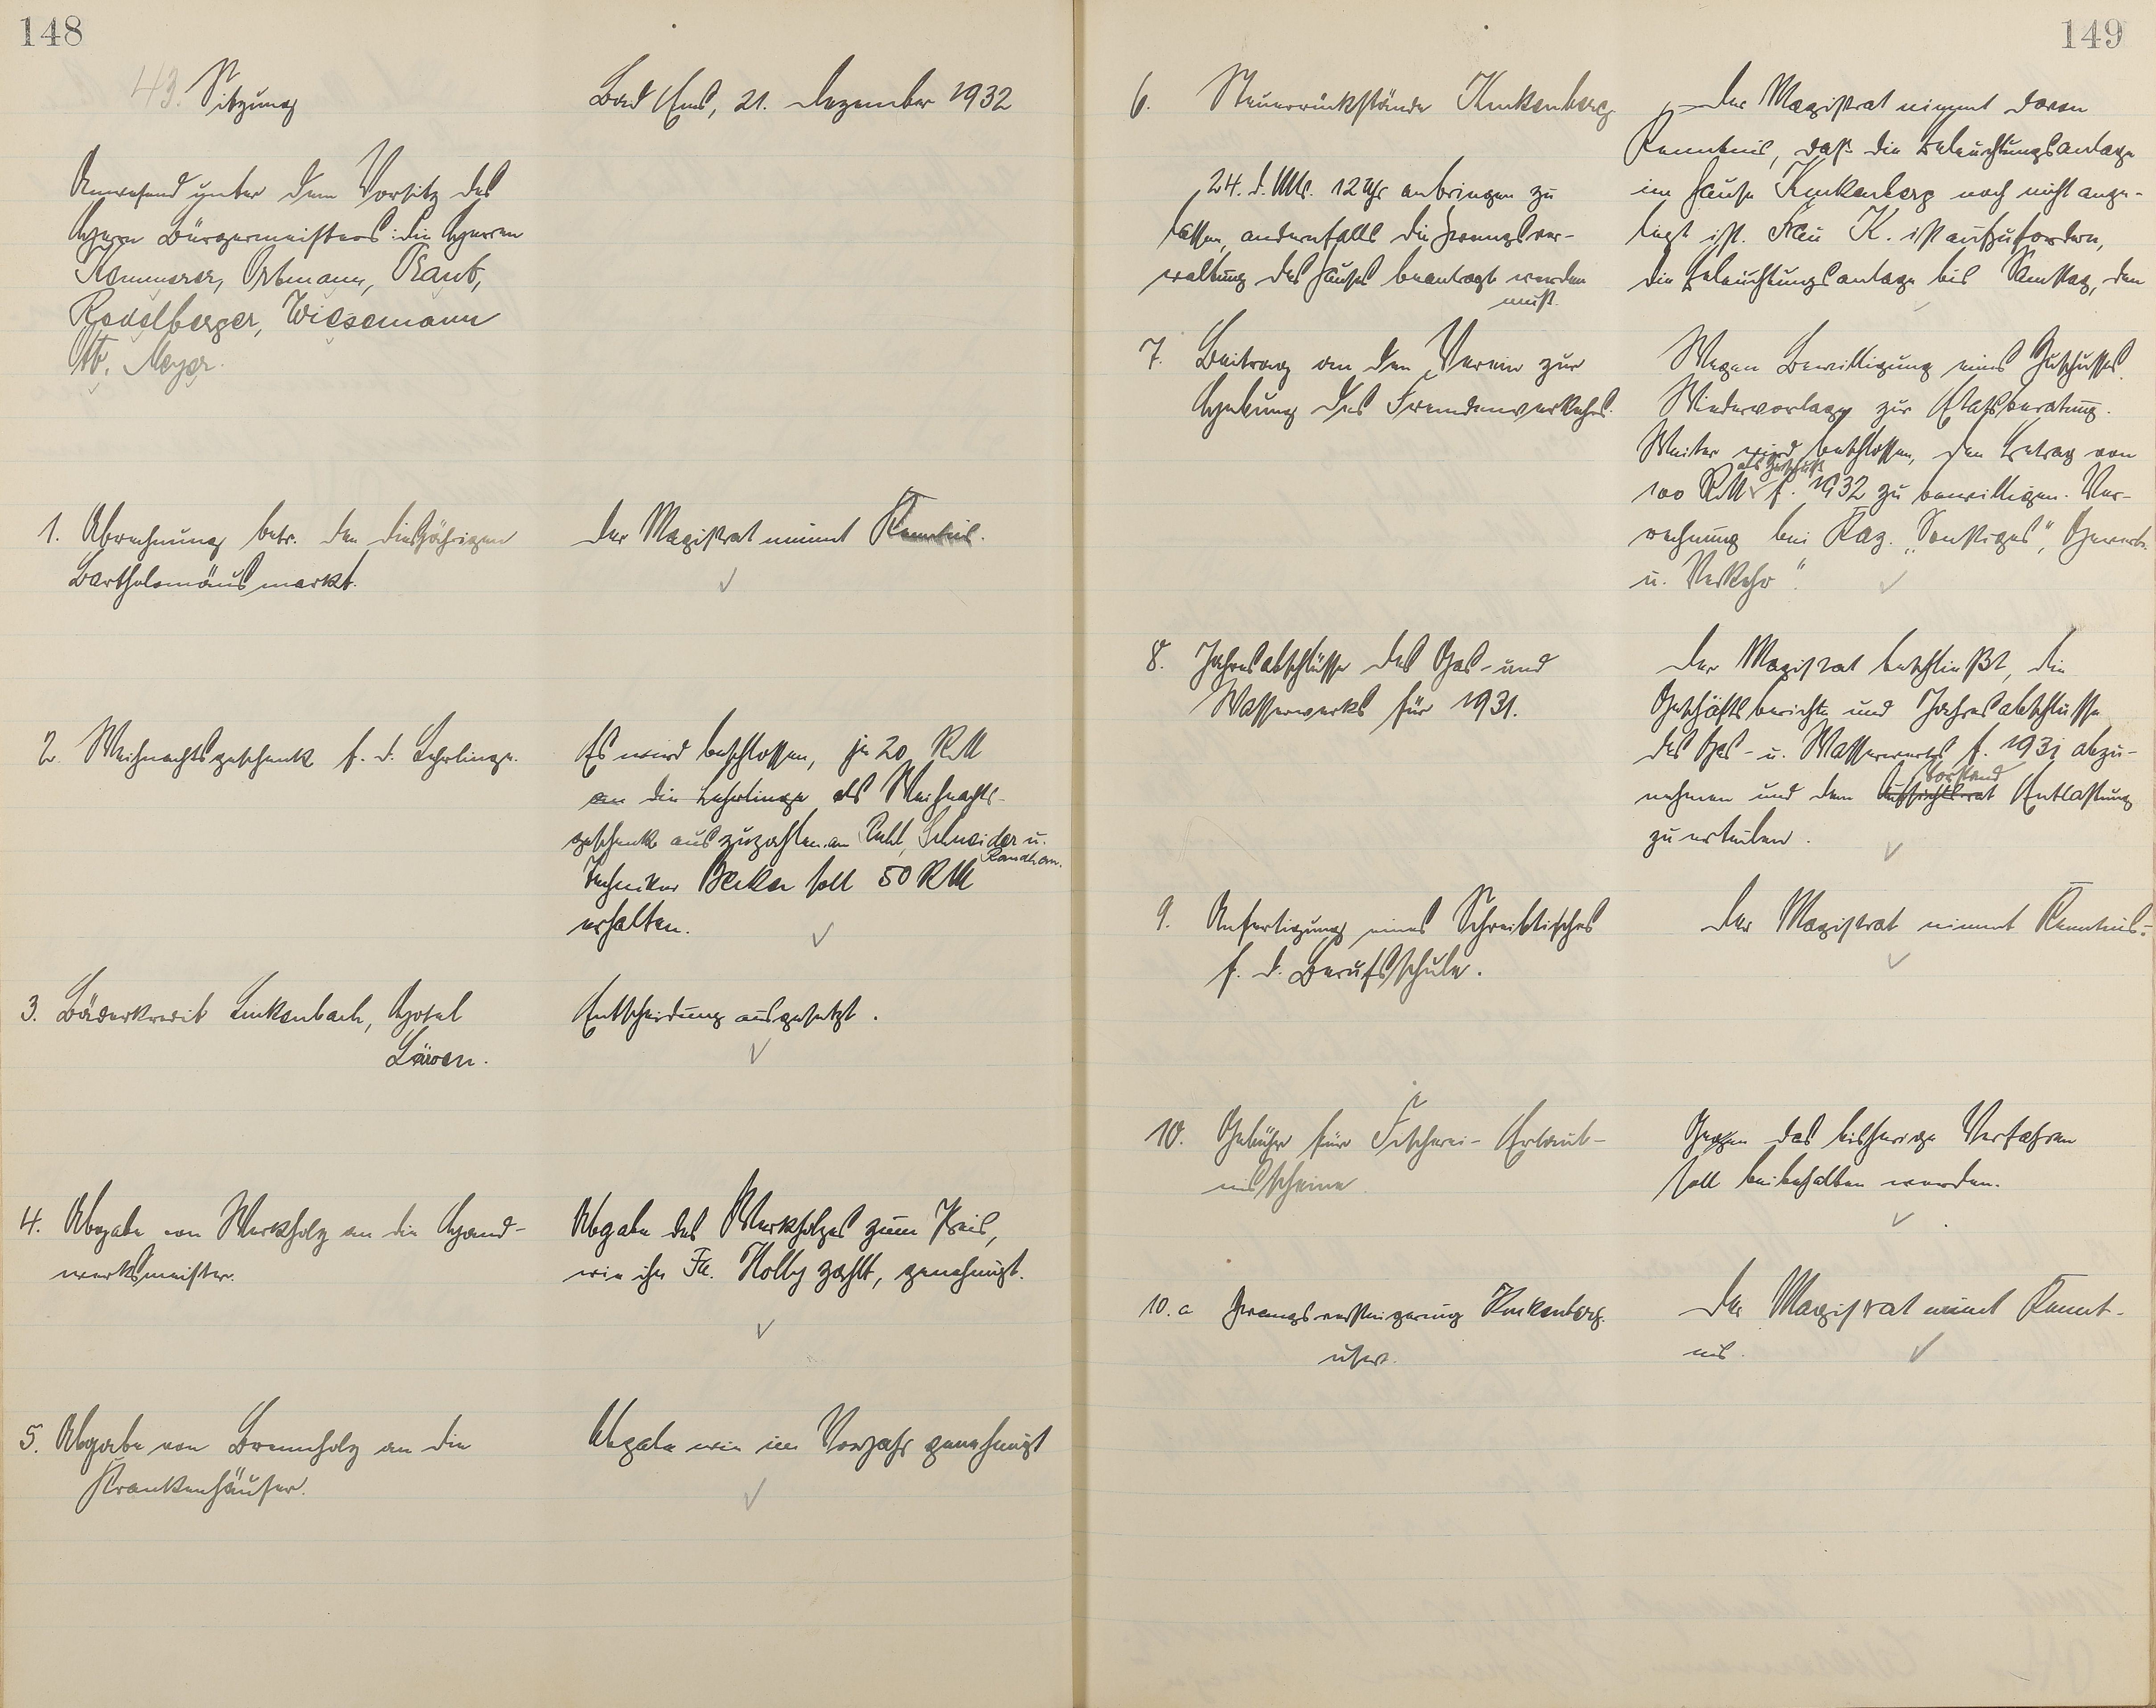 148
43. Sitzung
Bad Ems, 21. Dezember 1932
Anwesend unter dem Vorsitz des
Herrn Bürgermeisters: die Herren
Kemmerer, Ortmann, Raab,
Wiesemann
Meyer.
1. Abrechnung betr. den diesjährigen
Bartholomäusmarkt.
Der Magistrat nimmt Kenntnis.
2. Weihnachtsgeschenk f. d. Lehrlinge.
Es wird beschlossen, je 20 RM
an die Lehrlinge als Weihnachts-
geschenk auszuzahlen. an Schneider u.
Techniker Becker soll 50 RM
erhalten.
3. Bäderkredit Linkenbach, Hotel
Löwen.
Entscheidung ausgesetzt.
4. Abgabe von Werkholz an die Hand-
werksmeister.
Abgabe des Werkholzes zum Preis,
wie ihn Fa. Kolby zahlt, genehmigt.
5. Abgabe von Brennholz an die
Krankenhäuser.
Abgabe wie im Vorjahr genehmigt
149
6. Steuerrückstände Kinkenberg
Der Magistrat nimmt davon
Kenntnis, daß die Beleuchtungsanlage
im Hause Kinkenberg noch nicht ange-
legt ist. Frau K. ist aufzufordern,
die Beleuchtungsanlage bis Samstag, den
24. d. Mts. 12 Uhr anbringen zu
lassen, andernfalls die Zwangsver-
waltung des Hauses beantragt werden
muß.
7. Beitrag an den Verein zur
Hebung des Fremdenverkehrs.
Wegen Bewilligung eines Zuschusses
Wiedervorlage zur Etatsberatung.
Weiter wird beschlossen, den Betrag von
als Zuschuß
100 RM f. 1932 zu bewilligen. Ver-
rechnung bei Kag. "Sonstiges", Gewerbe
u. Verkehr".
8. Jahresabschlüsse des Gas- und
Wasserwerks für 1931.
Der Magistrat beschließt, die
Geschäftsberichte und Jahresabschlüsse
des Gas- u. Wasserwerks f. 1931 abzu-
Vorstand
nehmen und dem Aufsichtsrat Entlastung
zu erteilen.
9. Anfertigung eines Schreibtisches
f. d. Berufsschule.
Der Magistrat nimmt Kenntnis.
10. Gebühr für Fischerei-Erlaub-
nisscheine
Gegen das bisherige Verfahren
soll beibehalten werden.
10. a Zwangsversteigerung Kinkenberg.
Der Magistrat nimmt Kennt-
nis.